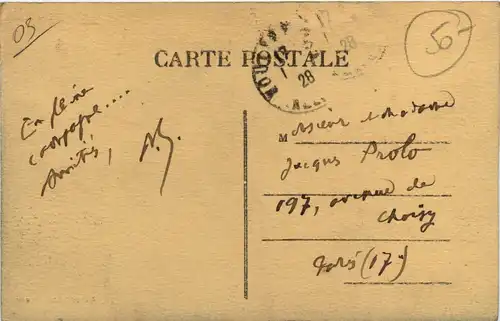 03
50-
CARTE POSTALE
17
28
28
En pleine
campagne....
Amitiés,
Monsieur et madame
Jacques Prolo
197, avenue de
Choisy
Paris (17e)